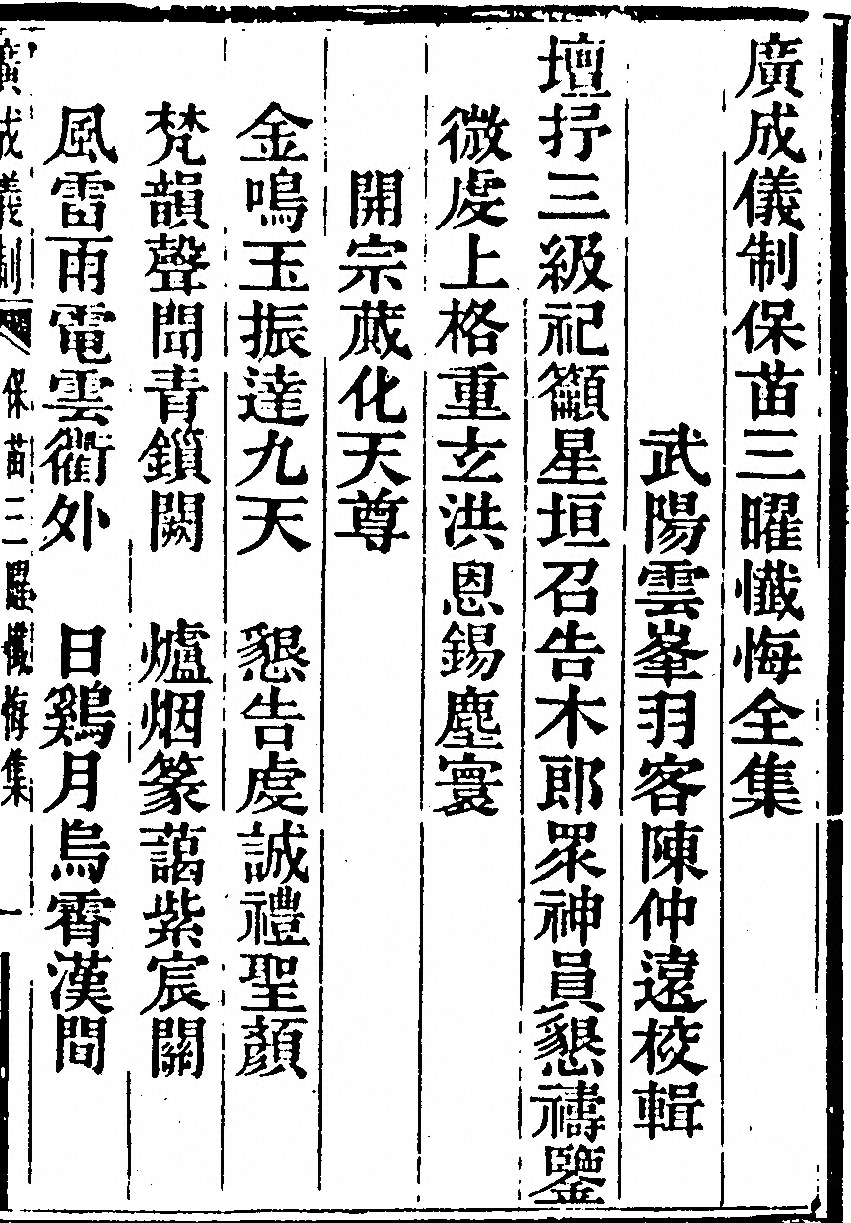 廣成儀制保苗三曜懺悔全集
武陽雲峯羽客陳仲遠校輯
壇抒三級祀籲星垣召告木郎眾神員懇禱鑒
微虔上格重玄洪恩錫塵寰
開宗蕆化天尊
金鳴玉振達九天　懇告虔誠禮聖顏
梵韻聲聞青鎖闕　爐烟篆藹紫宸關
風雷雨電雲衢外　日鷄月烏霄漢間
廣成儀制　保苗三曜懺悔集　一